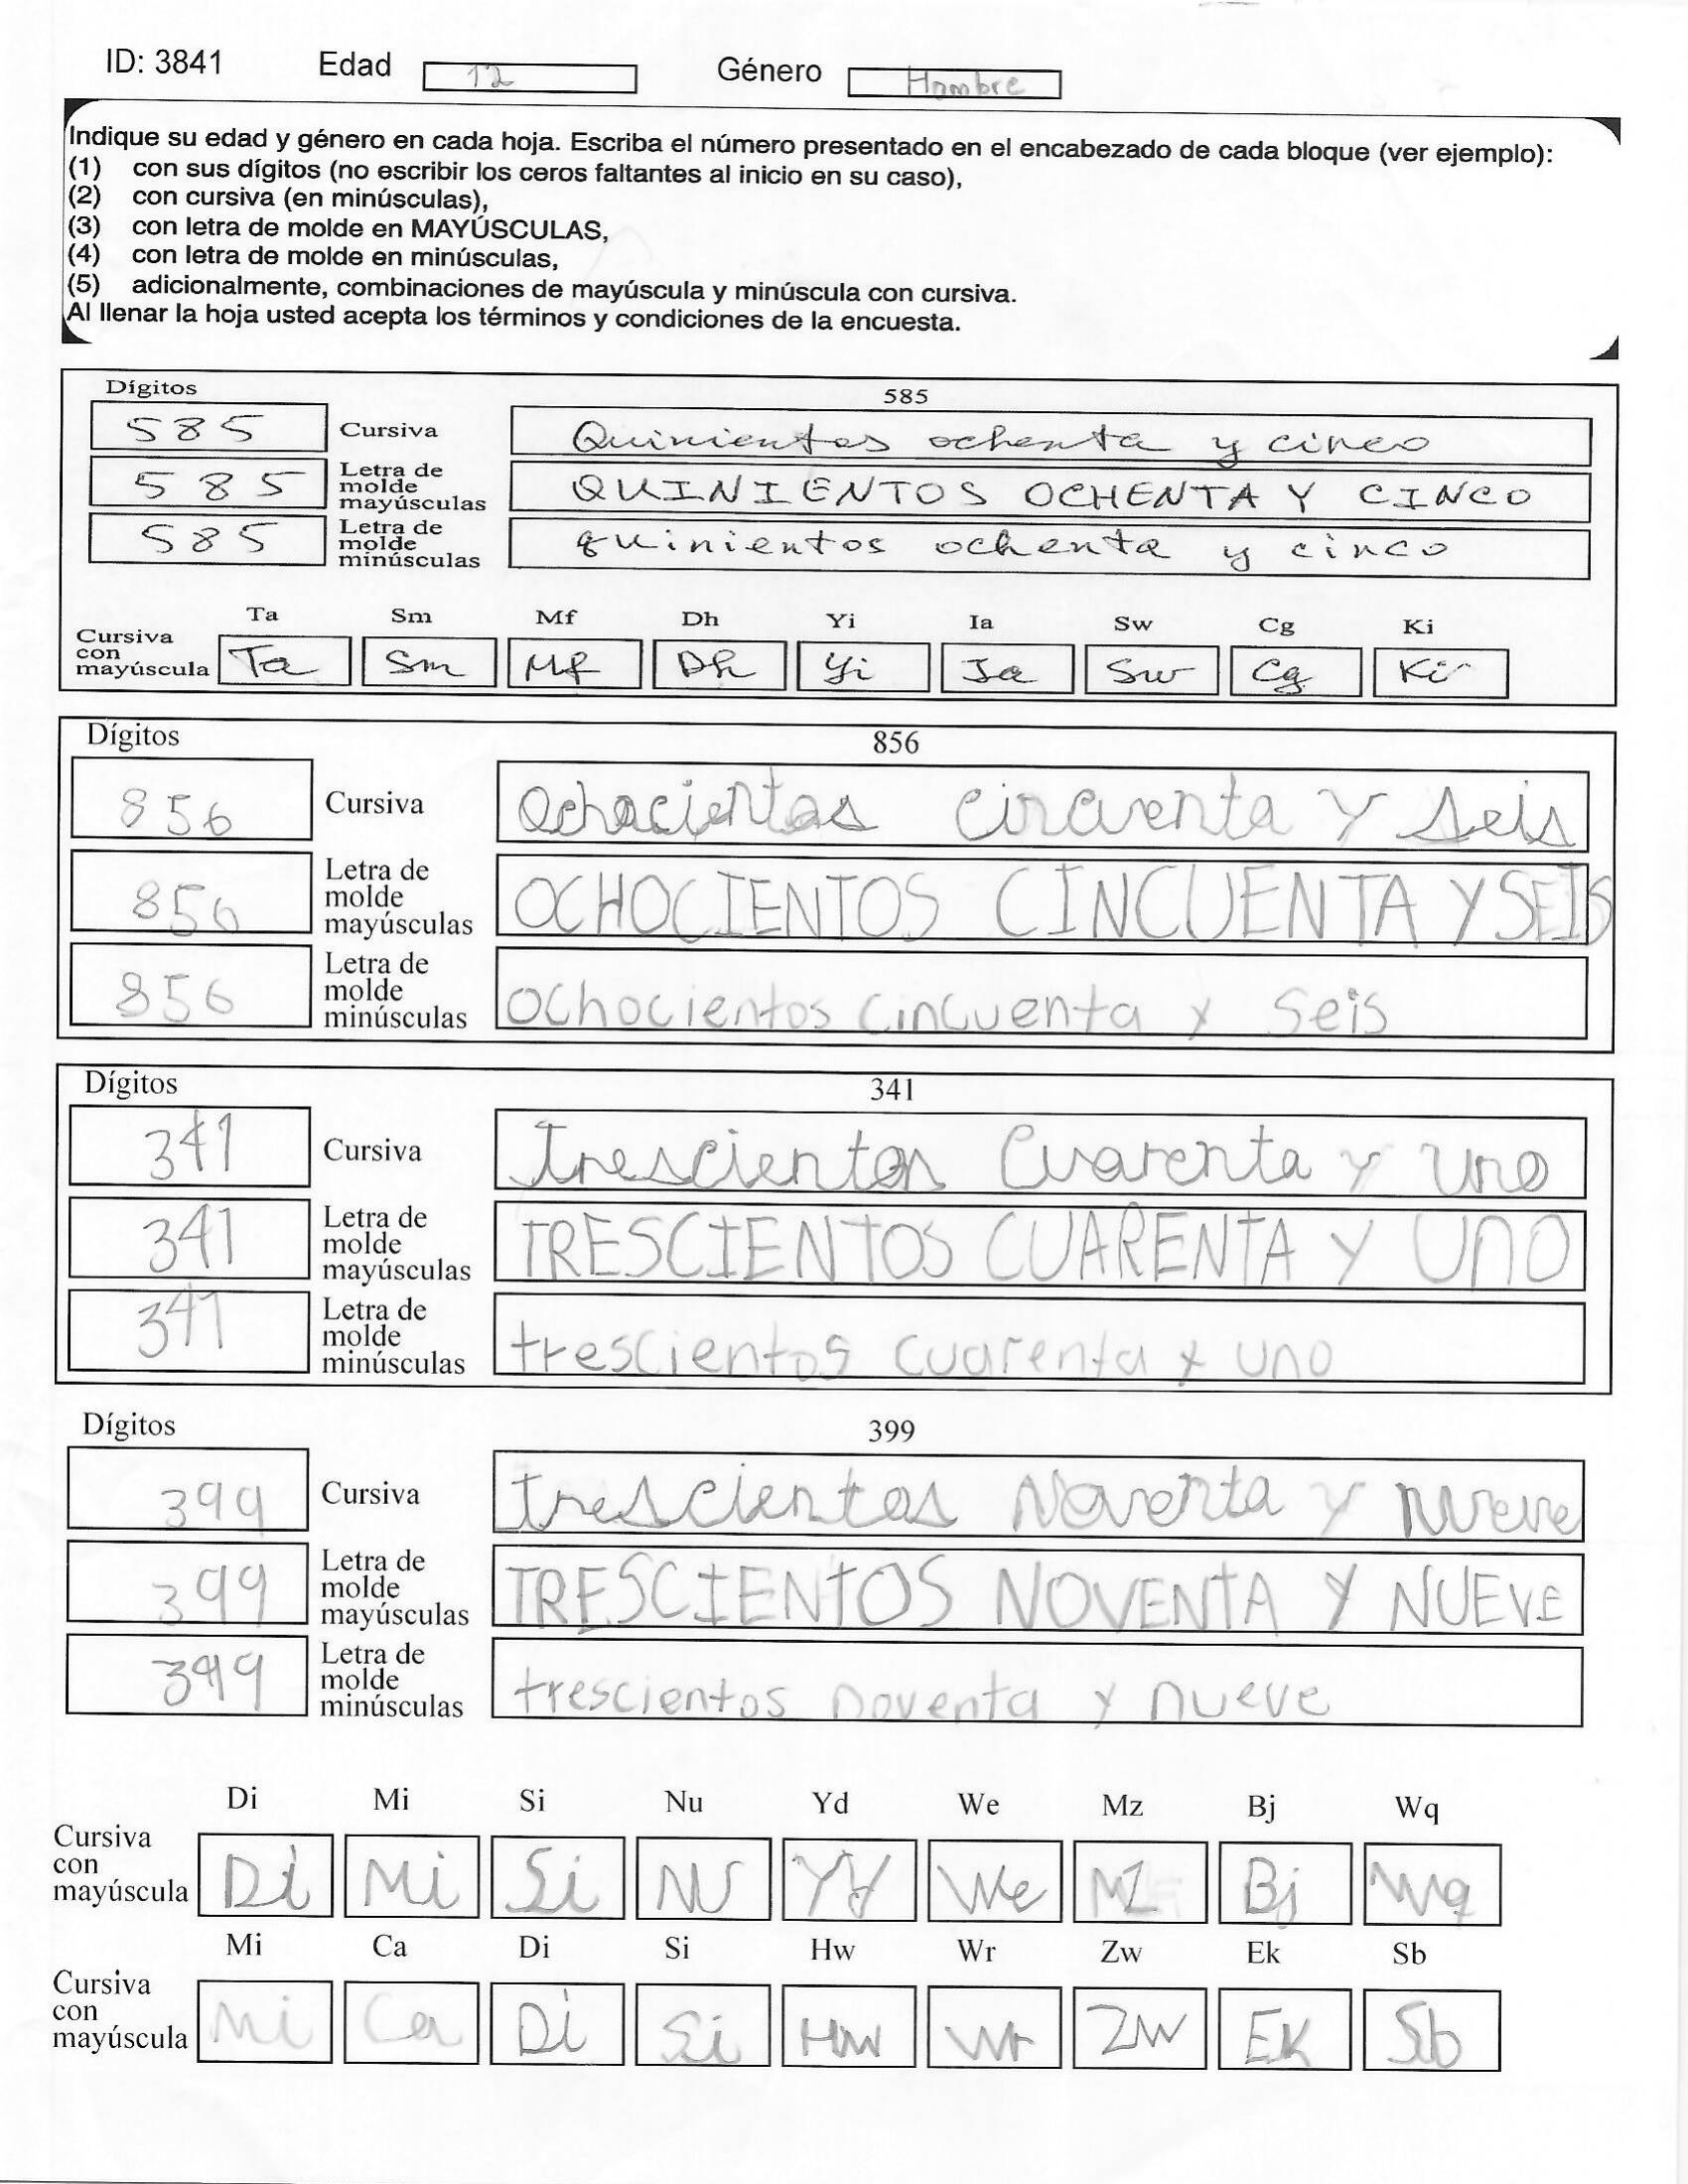 ID: 3841 Edad 12 Género Hombre
Indique su edad y género en cada hoja. Escriba el número presentado en el encabezado de cada bloque (ver ejemplo):
(1) con sus dígitos (no escribir los ceros faltantes al inicio en su caso),
(2) con cursiva (en minúsculas),
(3) con letra de molde en MAYÚSCULAS,
(4) con letra de molde en minúsculas,
(5) adicionalmente, combinaciones de mayúscula y minúscula con cursiva.
Al llenar la hoja usted acepta los términos y condiciones de la encuesta.
Dígitos 585
585 Cursiva Quinientos ochenta y cinco
585 Letra de molde mayúsculas QUINIENTOS OCHENTA Y CINCO
585 Letra de molde minúsculas quinientos ochenta y cinco
Ta Sm Mf Dh Yi Ia Sw Cg Ki
Cursiva con mayúscula Ta Sm Mf Dh Yi Ia Sw Cg Ki
Dígitos 856
856 Cursiva Ochocientos cincuenta y seis
856 Letra de molde mayúsculas OCHOCIENTOS CINCUENTA Y SEIS
856 Letra de molde minúsculas ochocientos cincuenta y seis
Dígitos 341
341 Cursiva trescientos cuarenta y uno
341 Letra de molde mayúsculas TRESCIENTOS CUARENTA Y UNO
341 Letra de molde minúsculas trescientos cuarenta y uno
Dígitos 399
399 Cursiva trescientos Noventa y nueve
399 Letra de molde mayúsculas TRESCIENTOS NOVENTA Y NUEVE
399 Letra de molde minúsculas trescientos noventa y nueve
Di Mi Si Nu Yd We Mz Bj Wq
Cursiva con mayúscula Di Mi Si Nu Yd We Mz Bj Wq
Mi Ca Di Si Hw Wr Zw Ek Sb
Cursiva con mayúscula Mi Ca Di Si Hw Wr Zw Ek Sb